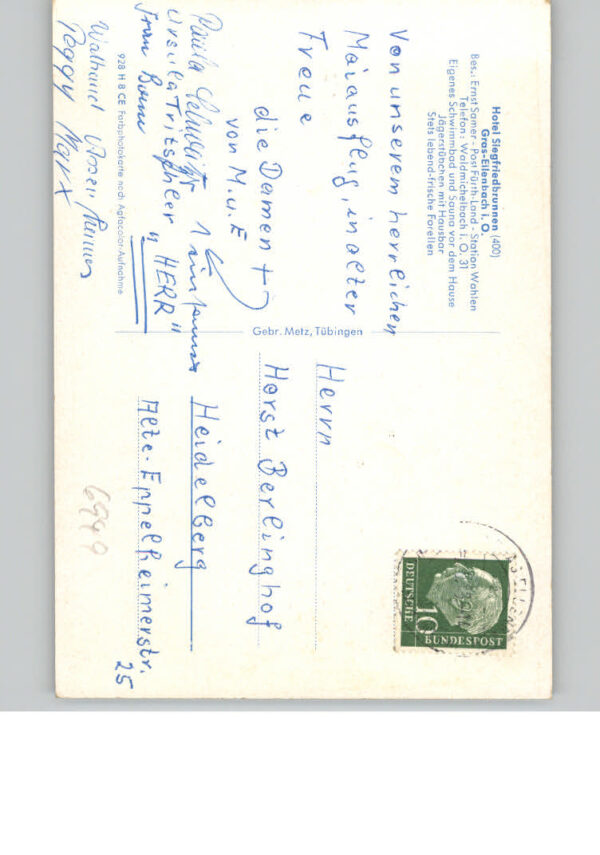 Hotel Siegfriedbrunnen (400)
Gras-Ellenbach i. O.
Bes.: Ernst Samer - Post Fürth-Land - Station Wahlen
Telefon: Waldmichelbach i. O. 31
Eigenes Schwimmbad und Sauna vor dem Hause
Jägerstübchen mit Hausbar
Stets lebend-frische Forellen
Von unserem herrlichen
Maiausflug, in alter
Treue
die Damen +
von M. u. E
1
Paula
Ursula Tritschler "HERR"
Frau
928 H 8 CE Farbphotokarte nach Agfacolor-Aufnahme
Waltraud
Peggy Marx
Gebr. Metz, Tübingen
Herrn
Horst Berlinghof
Heidelberg
Alte-Eppelheimerstr.
25
6949
DEUTSCHE
10
BUNDESPOST